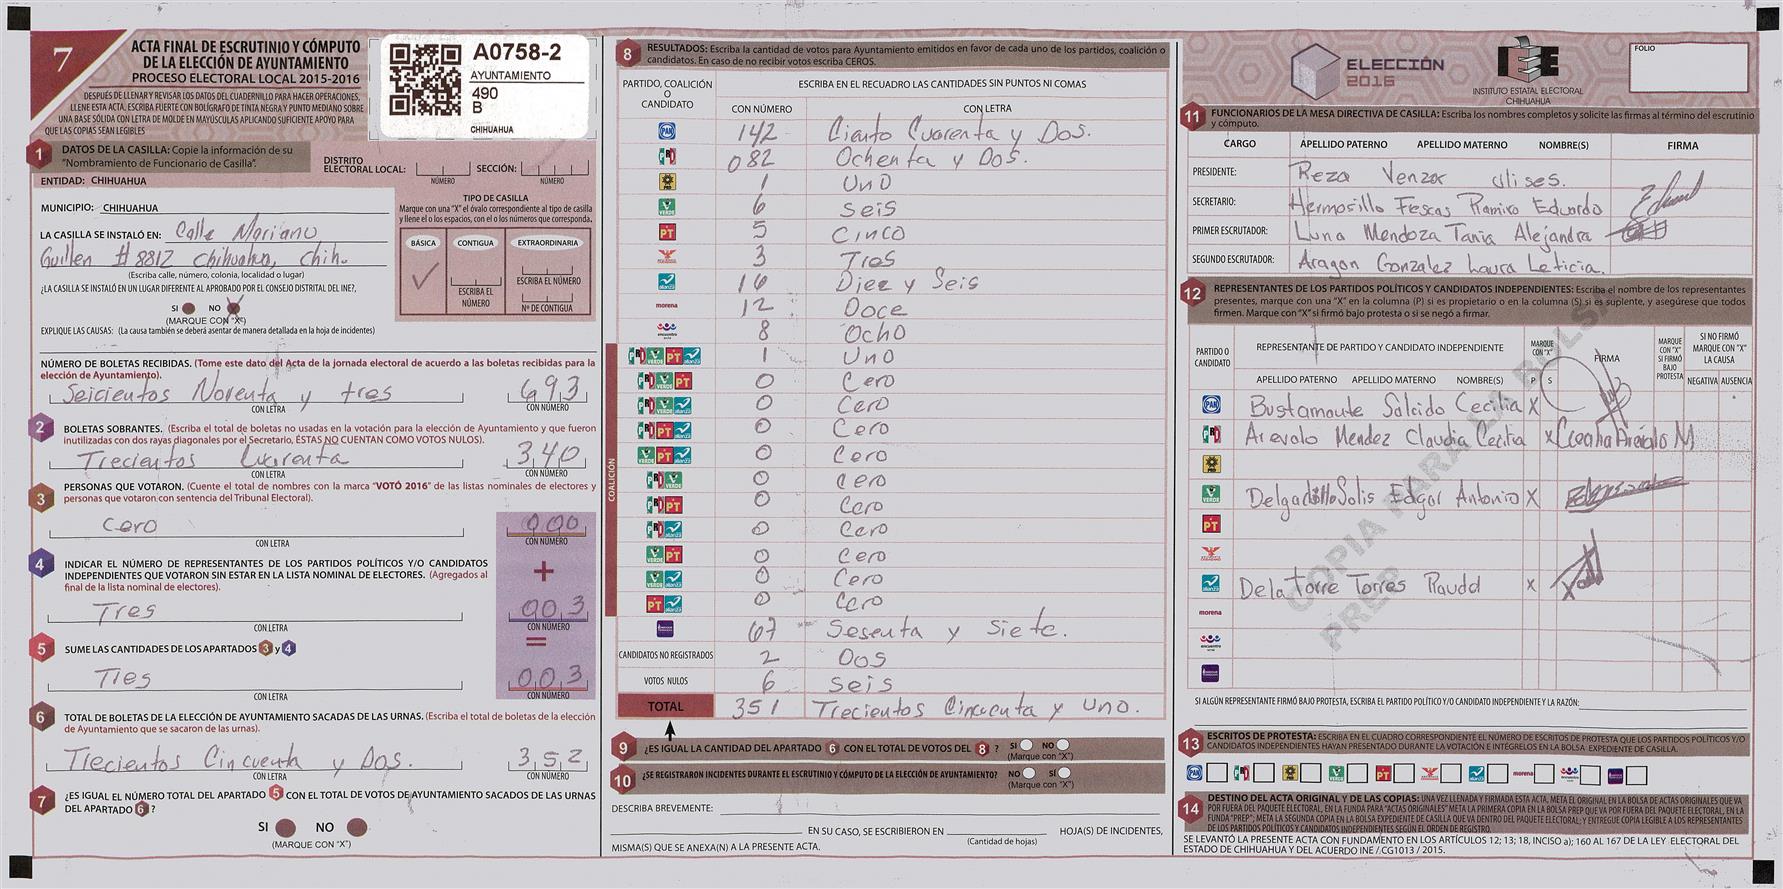 7
ACTA FINAL DE ESCRUTINIO Y CÓMPUTO
DE LA ELECCIÓN DE AYUNTAMIENTO
PROCESO ELECTORAL LOCAL 2015-2016
DESPUÉS DE LLENAR Y REVISAR LOS DATOS DEL CUADERNILLO PARA HACER OPERACIONES,
LLENE ESTA ACTA. ESCRIBA FUERTE CON BOLÍGRAFO DE TINTA NEGRA Y PUNTO MEDIANO SOBRE
UNA BASE SÓLIDA CON LETRA DE MOLDE EN MAYÚSCULAS APLICANDO SUFICIENTE APOYO PARA
QUE LAS COPIAS SEAN LEGIBLES
A0758-2
AYUNTAMIENTO
490
B
CHIHUAHUA
1 DATOS DE LA CASILLA: Copie la información de su
"Nombramiento de Funcionario de Casilla".
DISTRITO ELECTORAL LOCAL: NÚMERO SECCIÓN: NÚMERO
ENTIDAD: CHIHUAHUA
MUNICIPIO: CHIHUAHUA
LA CASILLA SE INSTALÓ EN: Calle Mariano
Guillen # 8812 Chihuahua, Chih.
(Escriba calle, número, colonia, localidad o lugar)
¿LA CASILLA SE INSTALÓ EN UN LUGAR DIFERENTE AL APROBADO POR EL CONSEJO DISTRITAL DEL INE?,
SI NO X
(MARQUE CON "X")
EXPLIQUE LAS CAUSAS: (La causa también se deberá asentar de manera detallada en la hoja de incidentes)
TIPO DE CASILLA
Marque con una "X" el óvalo correspondiente al tipo de casilla
y llene el o los espacios, con el o los números que corresponda.
BÁSICA CONTIGUA EXTRAORDINARIA
✓
ESCRIBA EL NÚMERO
ESCRIBA EL NÚMERO
Nº DE CONTIGUA
NÚMERO DE BOLETAS RECIBIDAS. (Tome este dato del Acta de la jornada electoral de acuerdo a las boletas recibidas para la
elección de Ayuntamiento).
Seicientos Noventa y tres 693
CON LETRA CON NÚMERO
2 BOLETAS SOBRANTES. (Escriba el total de boletas no usadas en la votación para la elección de Ayuntamiento y que fueron
inutilizadas con dos rayas diagonales por el Secretario, ÉSTAS NO CUENTAN COMO VOTOS NULOS).
Trecientos Cuarenta 340
CON LETRA CON NÚMERO
3 PERSONAS QUE VOTARON. (Cuente el total de nombres con la marca "VOTÓ 2016" de las listas nominales de electores y
personas que votaron con sentencia del Tribunal Electoral).
Cero 000
CON LETRA CON NÚMERO
4 INDICAR EL NÚMERO DE REPRESENTANTES DE LOS PARTIDOS POLÍTICOS Y/O CANDIDATOS
INDEPENDIENTES QUE VOTARON SIN ESTAR EN LA LISTA NOMINAL DE ELECTORES. (Agregados al
final de la lista nominal de electores).
+
Tres 003
CON LETRA CON NÚMERO
5 SUME LAS CANTIDADES DE LOS APARTADOS 3 y 4
=
Tres 003
CON LETRA CON NÚMERO
6 TOTAL DE BOLETAS DE LA ELECCIÓN DE AYUNTAMIENTO SACADAS DE LAS URNAS. (Escriba el total de boletas de la elección
de Ayuntamiento que se sacaron de las urnas).
Trecientos Cincuenta y Dos. 352
CON LETRA CON NÚMERO
7 ¿ES IGUAL EL NÚMERO TOTAL DEL APARTADO 5 CON EL TOTAL DE VOTOS DE AYUNTAMIENTO SACADOS DE LAS URNAS
DEL APARTADO 6 ?
SI NO
(MARQUE CON "X")
8 RESULTADOS: Escriba la cantidad de votos para Ayuntamiento emitidos en favor de cada uno de los partidos, coalición o
candidatos. En caso de no recibir votos escriba CEROS.
PARTIDO, COALICIÓN O CANDIDATO
ESCRIBA EN EL RECUADRO LAS CANTIDADES SIN PUNTOS NI COMAS
CON NÚMERO CON LETRA
PAN 142 Ciento Cuarenta y Dos.
PRI 082 Ochenta y Dos.
PRD 1 Uno
VERDE 6 Seis
PT 5 Cinco
3 Tres
alianza 16 Diez y Seis
morena 12 Doce
encuentro 8 Ocho
COALICIÓN
PRI VERDE PT alianza 1 Uno
PRI VERDE PT 0 Cero
PRI VERDE alianza 0 Cero
PRI PT alianza 0 Cero
VERDE PT alianza 0 Cero
PRI VERDE 0 Cero
PRI PT 0 Cero
PRI alianza 0 Cero
VERDE PT 0 Cero
VERDE alianza 0 Cero
PT alianza 0 Cero
67 Sesenta y Siete.
CANDIDATOS NO REGISTRADOS 2 Dos
VOTOS NULOS 6 Seis
TOTAL 351 Trecientos Cincuenta y Uno.
9 ¿ES IGUAL LA CANTIDAD DEL APARTADO 6 CON EL TOTAL DE VOTOS DEL 8 ? SI NO
(Marque con "X")
10 ¿SE REGISTRARON INCIDENTES DURANTE EL ESCRUTINIO Y CÓMPUTO DE LA ELECCIÓN DE AYUNTAMIENTO? NO SÍ
(Marque con "X")
DESCRIBA BREVEMENTE:
EN SU CASO, SE ESCRIBIERON EN (Cantidad de hojas) HOJA(S) DE INCIDENTES,
MISMA(S) QUE SE ANEXA(N) A LA PRESENTE ACTA.
ELECCIÓN
2016
IEE
INSTITUTO ESTATAL ELECTORAL
CHIHUAHUA
FOLIO
11 FUNCIONARIOS DE LA MESA DIRECTIVA DE CASILLA: Escriba los nombres completos y solicite las firmas al término del escrutinio
y cómputo.
CARGO APELLIDO PATERNO APELLIDO MATERNO NOMBRE(S) FIRMA
PRESIDENTE: Reza Venzor Ulises.
SECRETARIO: Hermosillo Fescas Ramiro Eduardo
PRIMER ESCRUTADOR: Luna Mendoza Tania Alejandra
SEGUNDO ESCRUTADOR: Aragon Gonzalez Laura Leticia.
12 REPRESENTANTES DE LOS PARTIDOS POLÍTICOS Y CANDIDATOS INDEPENDIENTES: Escriba el nombre de los representantes
presentes, marque con una "X" en la columna (P) si es propietario o en la columna (S) si es suplente, y asegúrese que todos
firmen. Marque con "X" si firmó bajo protesta o si se negó a firmar.
PARTIDO O CANDIDATO
REPRESENTANTE DE PARTIDO Y CANDIDATO INDEPENDIENTE
MARQUE CON "X"
FIRMA
MARQUE CON "X" SI FIRMÓ BAJO PROTESTA
SI NO FIRMÓ MARQUE CON "X" LA CAUSA
APELLIDO PATERNO APELLIDO MATERNO NOMBRE(S) P S NEGATIVA AUSENCIA
PAN Bustamante Salcido Cecilia X
PRI Arevalo Mendez Claudia Cecilia X
PRD
VERDE Delgadillo Solis Edgar Antonio X
PT
alianza De la Torre Torres Raudd X
morena
encuentro
COPIA PARA LA BOLSA
PREP
SI ALGÚN REPRESENTANTE FIRMÓ BAJO PROTESTA, ESCRIBA EL PARTIDO POLÍTICO Y/O CANDIDATO INDEPENDIENTE Y LA RAZÓN:
13 ESCRITOS DE PROTESTA: ESCRIBA EN EL CUADRO CORRESPONDIENTE EL NÚMERO DE ESCRITOS DE PROTESTA QUE LOS PARTIDOS POLÍTICOS Y/O
CANDIDATOS INDEPENDIENTES HAYAN PRESENTADO DURANTE LA VOTACIÓN E INTÉGRELOS EN LA BOLSA EXPEDIENTE DE CASILLA.
PAN PRI PRD VERDE PT alianza morena encuentro
14 DESTINO DEL ACTA ORIGINAL Y DE LAS COPIAS: UNA VEZ LLENADA Y FIRMADA ESTA ACTA, META EL ORIGINAL EN LA BOLSA DE ACTAS ORIGINALES QUE VA
POR FUERA DEL PAQUETE ELECTORAL, EN LA FUNDA PARA "ACTAS ORIGINALES" META LA PRIMERA COPIA EN LA BOLSA PREP QUE VA POR FUERA DEL PAQUETE ELECTORAL, EN LA
FUNDA "PREP"; META LA SEGUNDA COPIA EN LA BOLSA EXPEDIENTE DE CASILLA QUE VA DENTRO DEL PAQUETE ELECTORAL; Y ENTREGUE COPIA LEGIBLE A LOS REPRESENTANTES
DE LOS PARTIDOS POLÍTICOS Y CANDIDATOS INDEPENDIENTES SEGÚN EL ORDEN DE REGISTRO.
SE LEVANTÓ LA PRESENTE ACTA CON FUNDAMENTO EN LOS ARTÍCULOS 12; 13; 18, INCISO a); 160 AL 167 DE LA LEY ELECTORAL DEL
ESTADO DE CHIHUAHUA Y DEL ACUERDO INE / CG1013 / 2015.